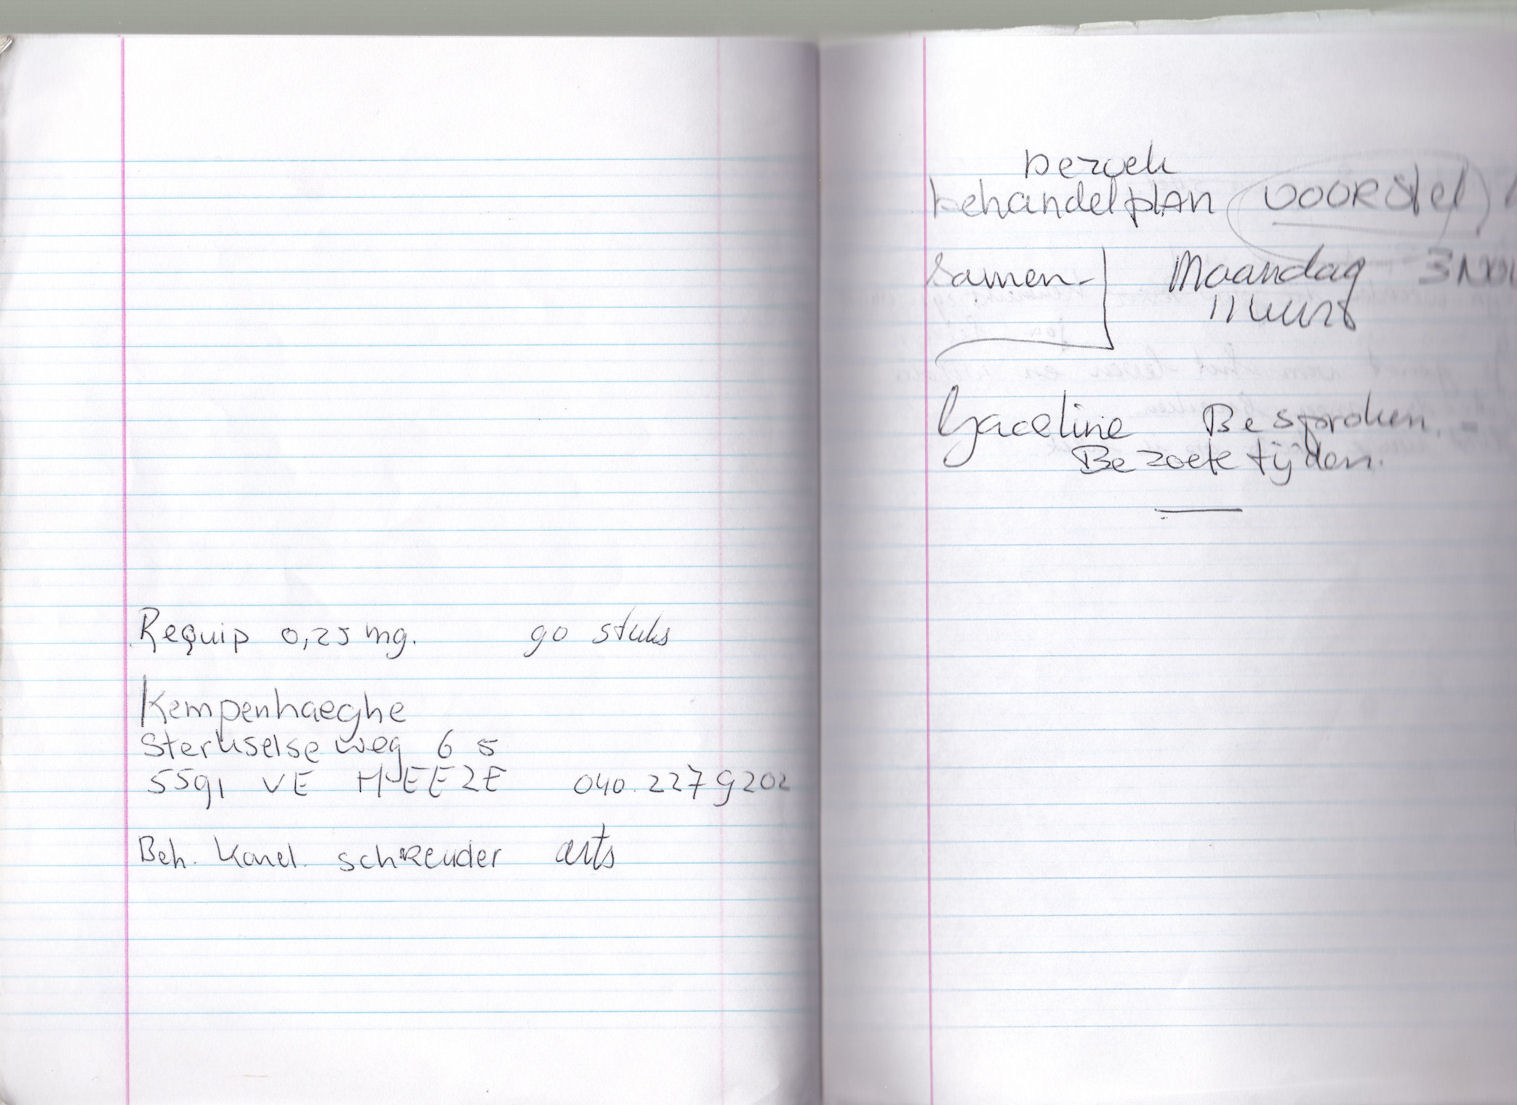 Requip 0,25 mg. 90 stuks
Kempenhaeghe
Sterkselseweg 65
5591 VE HEEZE 040.2279202
Beh. Karel. schreuder arts
bezoek
behandelplan VOORStel
Samen- Maandag 3 NOV
11 uur
Jaceline Besproken. =
Bezoektijden.